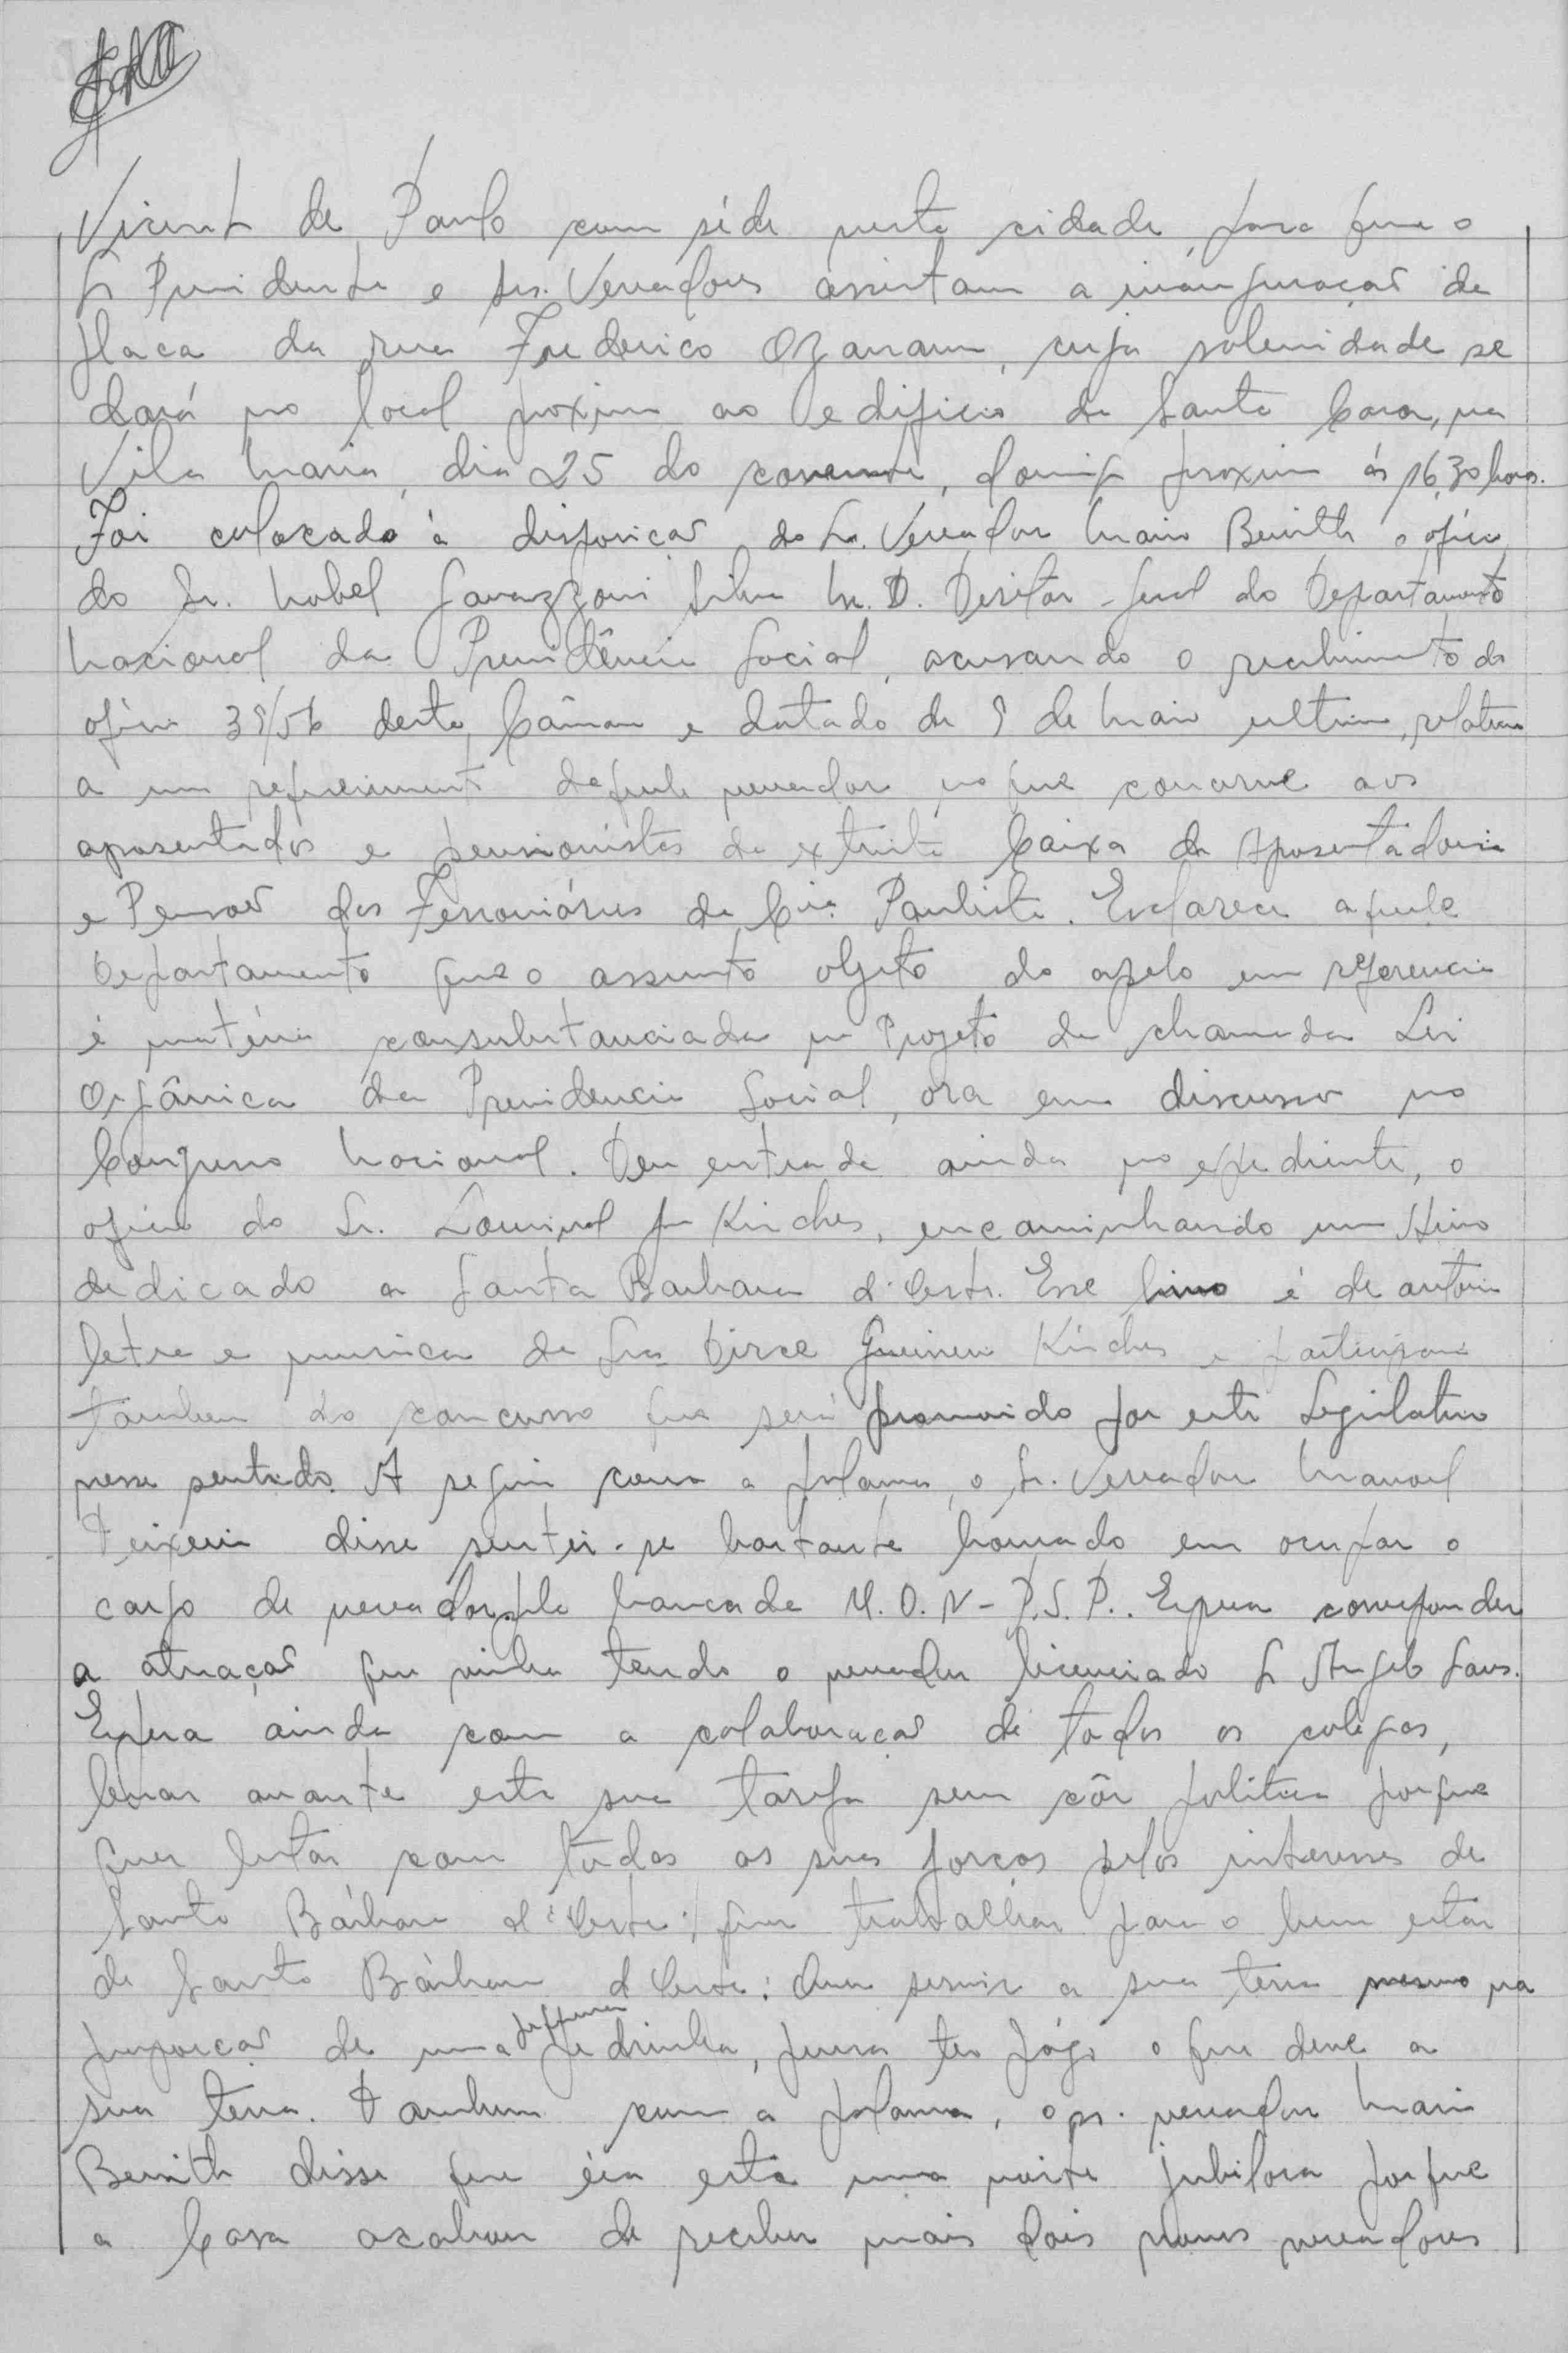 Vicente de Paulo com séde nesta cidade, para que o
Sr Presidente e srs. Vereadores assistam a inauguração da
placa da rua Frederico Ozanam, cuja solenidade se
dará no local proximo ao edificio da Santa Casa, na
Vila Maria, dia 25 do corrente, domingo proximo ás 16,30 horas.
Foi colocado à disposição do Sr. Vereador Mario Benith o oficio
do Sr. Nobel Silva M. D. Diretor-geral do Departamento
Nacional da Previdência Social, acusando o recebimento do
oficio 39/56 desta Câmara e datado de 9 de Maio ultimo, relativo
a um requerimento daquele vereador no que concerne aos
aposentados e pensionistas da extinta Caixa de Aposentadoria
e Pensão dos Ferroviários da Cia. Paulista. Esclarece aquele
Departamento que o assunto objeto do apelo em referencia
é matéria consubstanciada no Projeto da chamada Lei
Orgânica da Previdencia Social, ora em discussão no
Congresso Nacional. Deu entrada ainda no expediente, o
oficio do Sr. Kirches, encaminhando um Hino
dedicado a Santa Barbara d'Oeste. Esse hino é de autoria
letra e musica da Sra Dirce Kirches e participará
tambem do concurso que será promovido por este Legislativo
nesse sentido. A seguir com a palavra, o Sr. Vereador Manoel
Teixeira disse sentir-se bastante honrado em ocupar o
cargo de vereador pela bancada U.D.N - P.S.P.. Espera corresponder
a atuação que vinha tendo o vereador licenciado Sr Angelo Sans.
Espera ainda com a colaboração de todos os colegas,
levar avante esta sua tarefa sem côr politica porque
quer lutar com todas as suas forças pelos interesses de
Santa Bárbara d'Oeste; quer trabalhar para o bem estar
de Santa Bárbara d'Oeste: Quer servir a sua terra mesmo na
proporção de uma pequena pedrinha, para ter pago o que deve a
sua terra. Tambem com a palavra, o sr. vereador Mario
Benith disse que éra esta uma noite jubilosa porque
a Casa acabou de receber mais dois novos vereadores